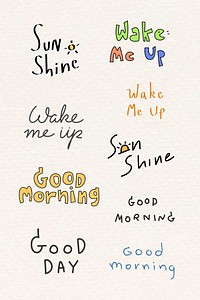 Sun
Shine
Wake
Me Up
Wake
me up
Wake
Me Up
Sun
Shine
GOOD
Morning
GOOD
MORNING
GOOD
DAY
Good
morning